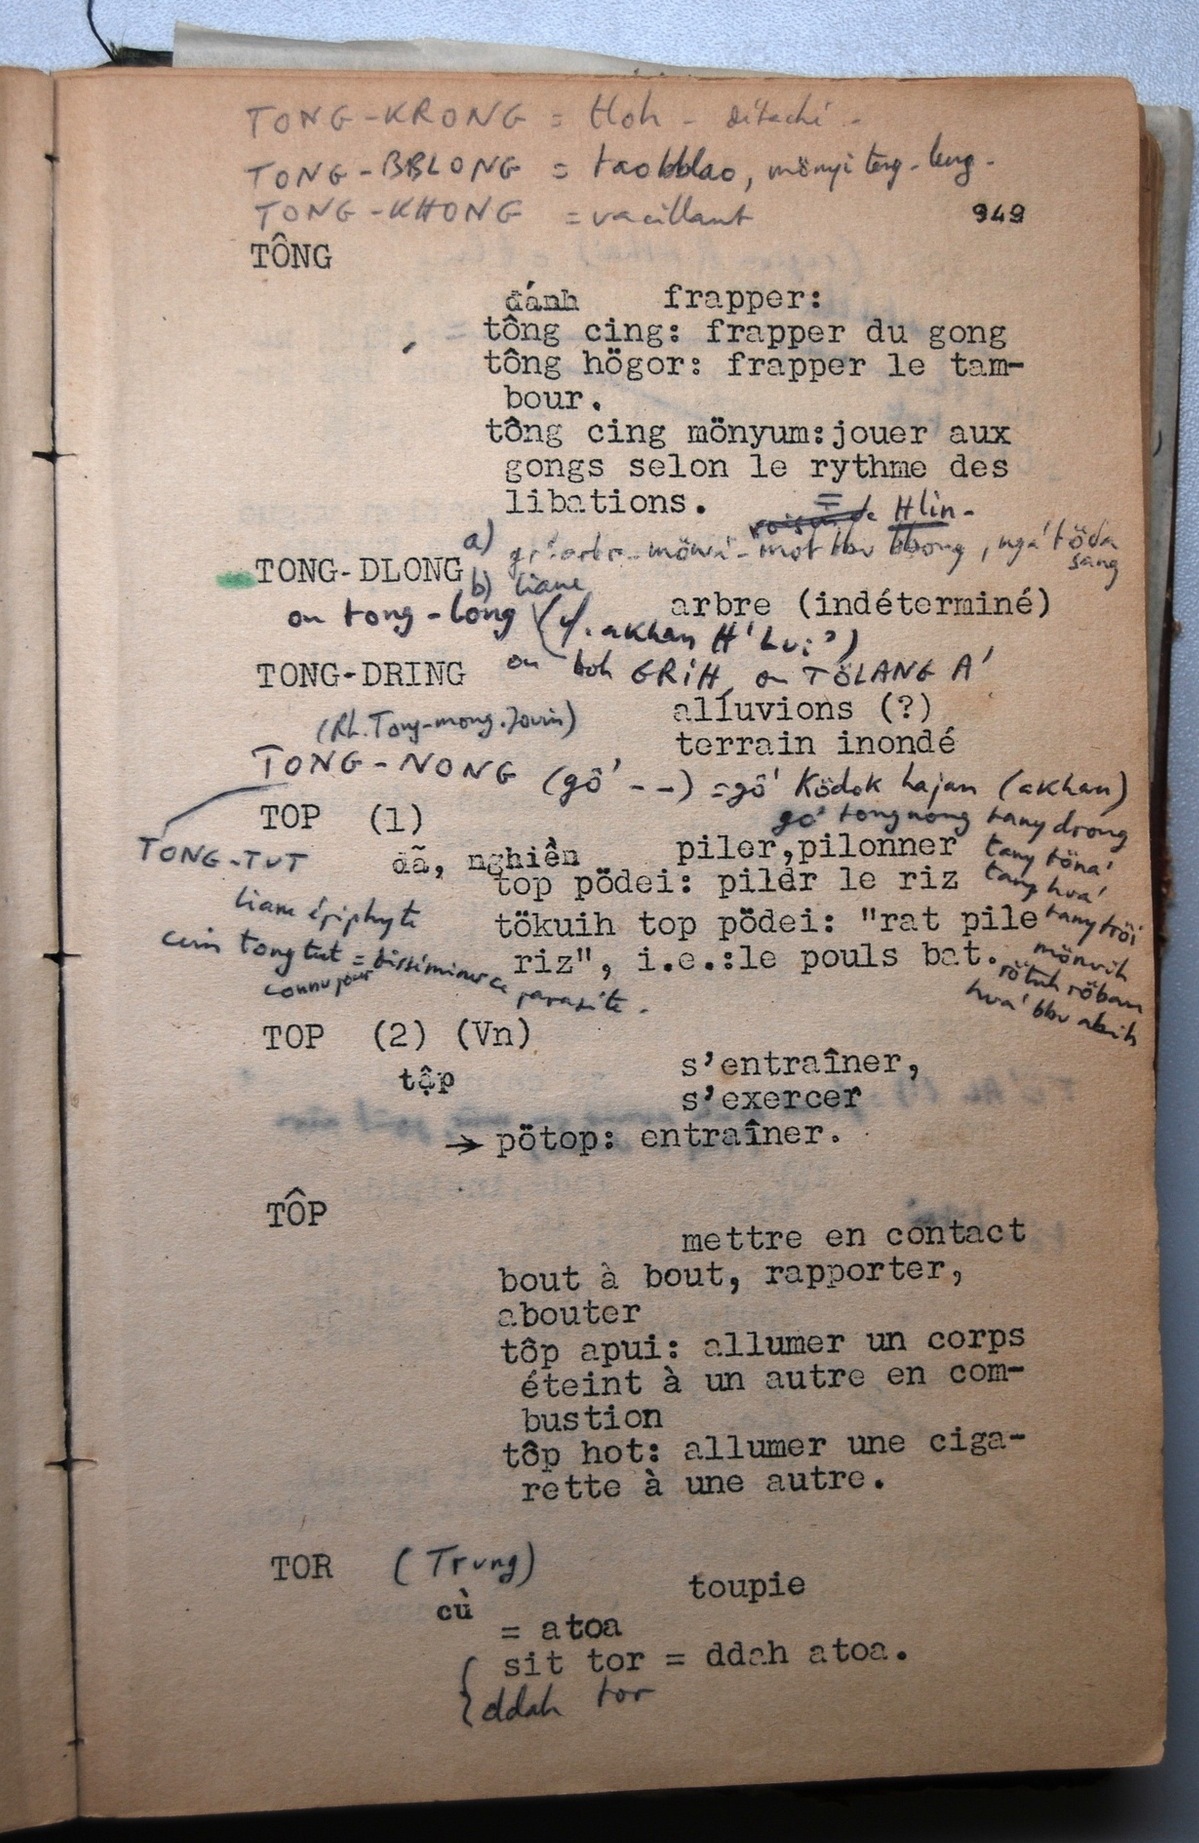 TONG-KRONG = tloh - détaché -
TONG-BBLONG = taobblao, mönyi teng-leng-
TONG-KHONG = vacillant
949
TÔNG
đánh frapper:
tông cing: frapper du gong
tông högor: frapper le tam-
bour.
tông cing mönyum:jouer aux
gongs selon le rythme des
libations.
= Hlin-
a) mot bbu bbong, ngă töda
sang
TONG-DLONG
b) liane
arbre (indéterminé)
ou tong-long (cf. akhan H'Lui?)
ou boh GRIH, ou TÖLANG A'
TONG-DRING
alluvions (?)
(Rh. Tong-mong. Jouin)
terrain inondé
TONG-NONG (gô' --) = gô' Ködok hajan (akhan)
gô' tongnong tany drong
tany töna'
tany hua'
tany tröi
mönuih
rötuh röbau
hua' bbu abih
TOP (1)
đã, nghiền piler,pilonner
top pödei: piler le riz
tökuih top pödei: "rat pile
riz", i.e.:le pouls bat.
TONG-TUT
liane épiphyte
tong tut =
connu pour
parasite.
TOP (2) (Vn)
tập s'entraîner,
s'exercer
→ pötop: entraîner.
TÔP
mettre en contact
bout à bout, rapporter,
abouter
tôp apui: allumer un corps
éteint à un autre en com-
bustion
tôp hot: allumer une ciga-
rette à une autre.
TOR (Trung)
cù toupie
= atoa
sit tor = ddah atoa.
ddah tor